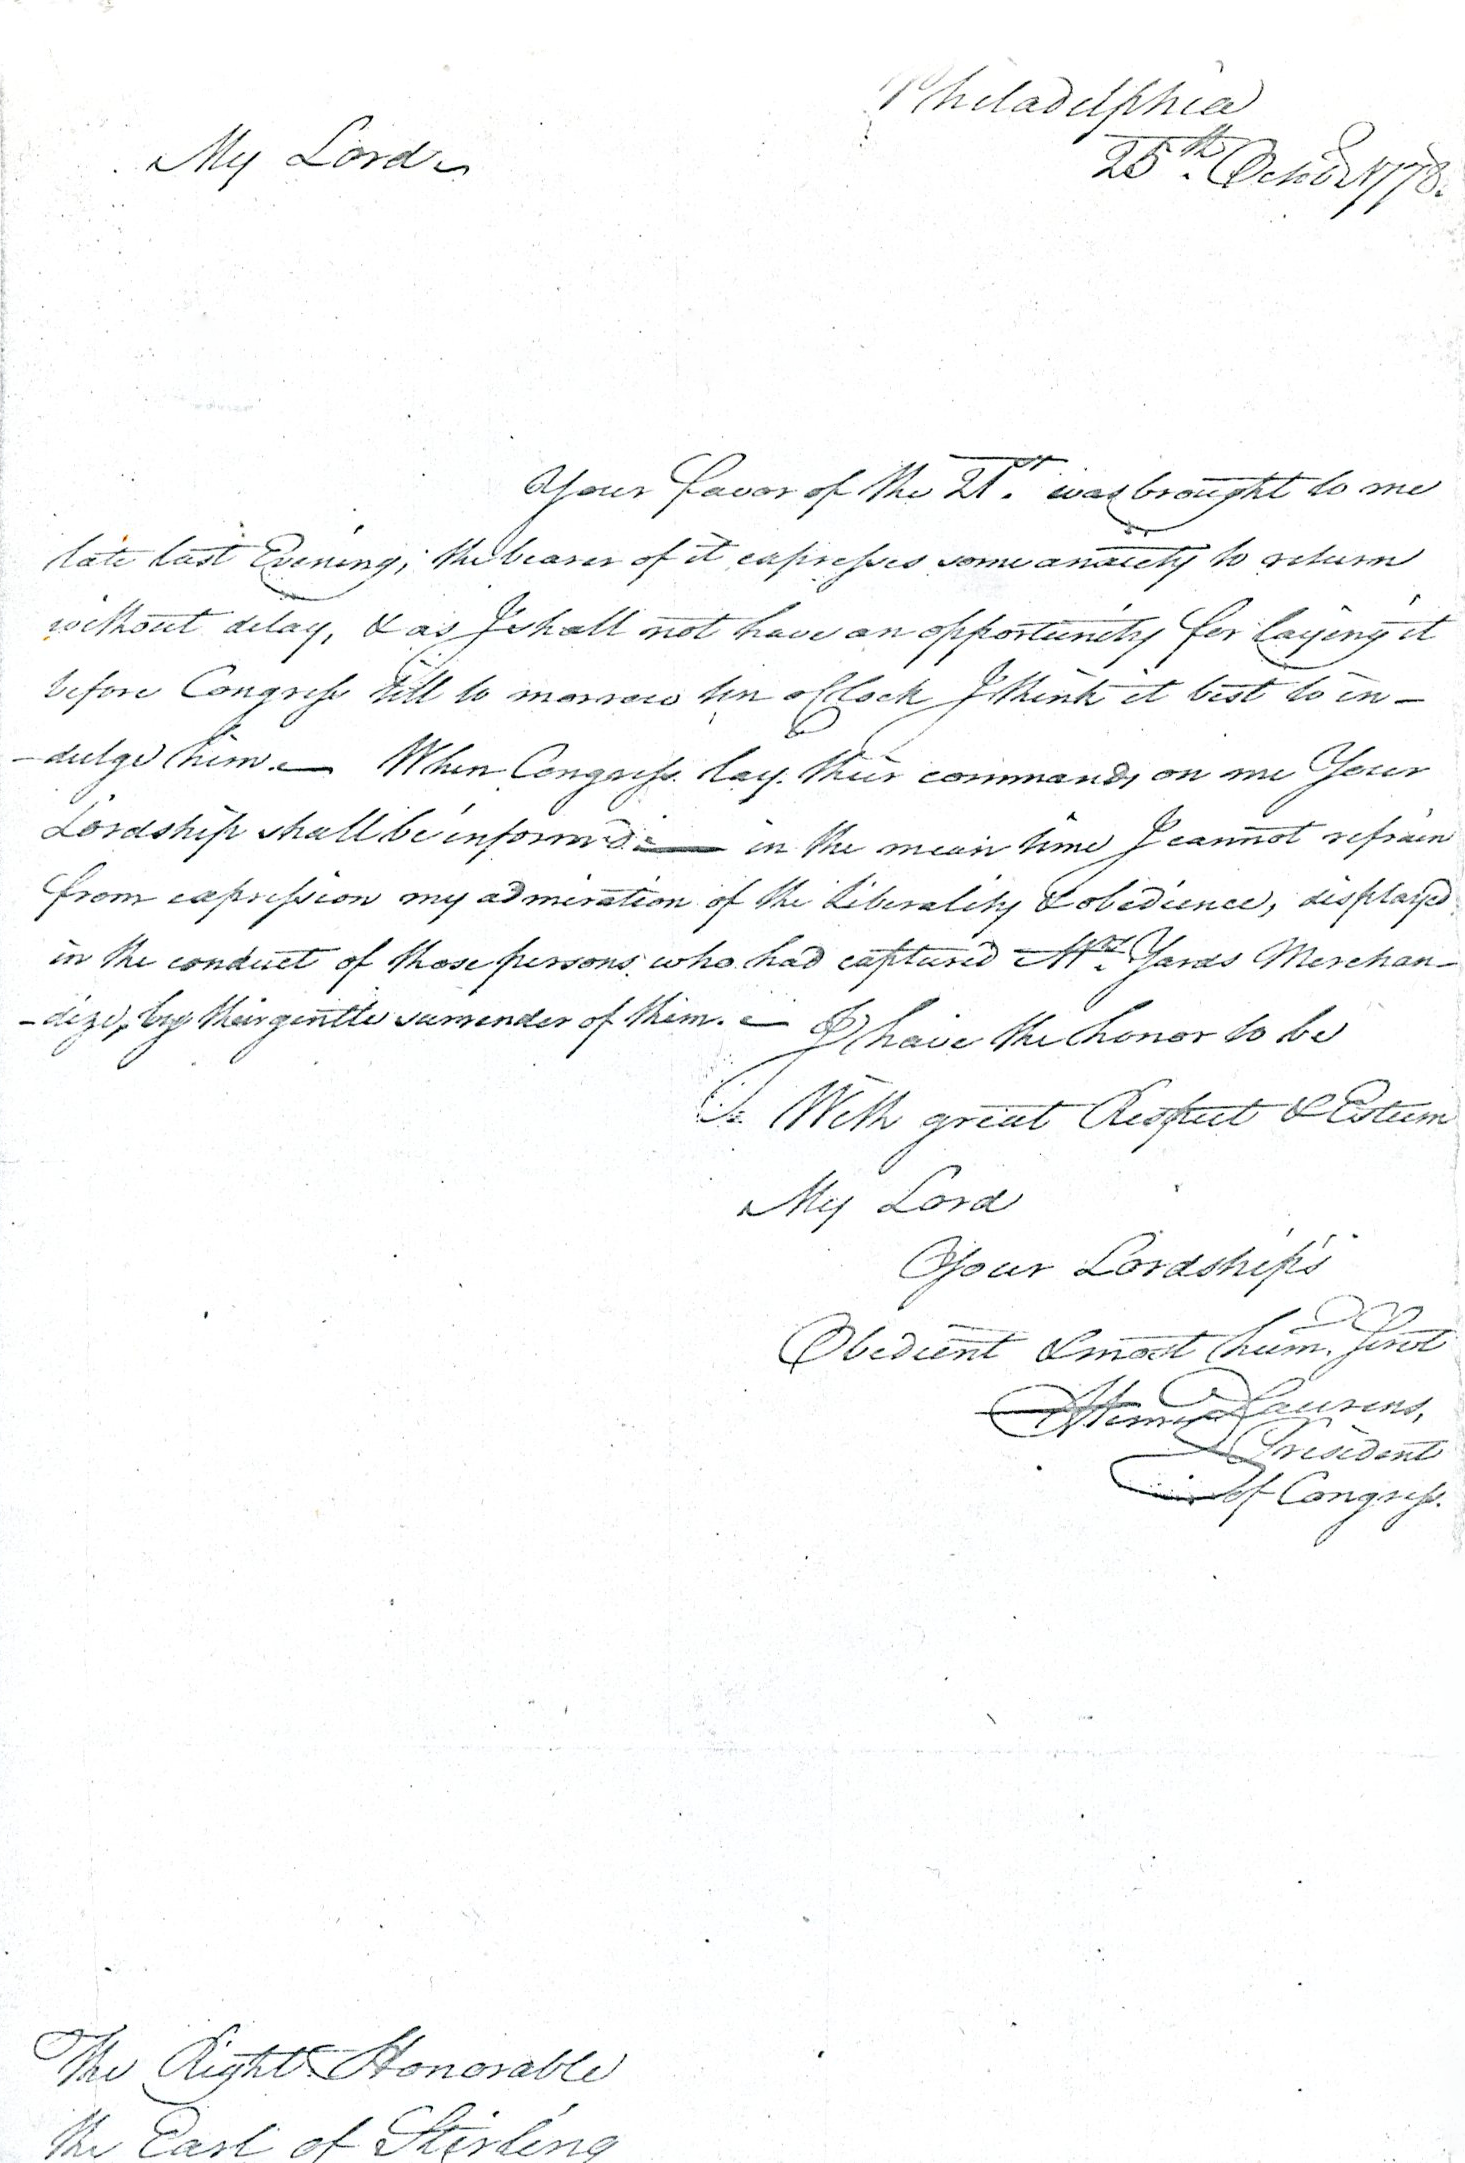 Philadelphia
My Lord
25th. Octobr 1778.
Your favor of the 21st. was brought to me
late last Evening; the bearer of it expresses some anxiety to return
without delay, & as I shall not have an opportunity for laying it
before Congress till to morrow ten oClock I think it best to in-
-dulge him. — When Congress lay their commands on me Your
Lordship shall be informed: — in the mean time I cannot refrain
from expression my admiration of the Liberality & obedience, displayed
in the conduct of those persons who had captured Mrs. Yards Merchan-
-dize, by their gentle surrender of them. — I have the honor to be
With great Respect & Esteem
My Lord
Your Lordship's
Obedient & most hum. Servt
Henry Laurens,
President
of Congress.
The Right Honorable
the Earl of Stirling